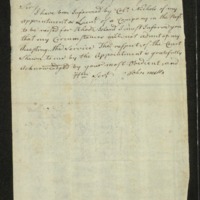 Sir/
I have been Informed by Capt. of my
appointment a Lieut of a Company in the Regt
to be raised for Rhode Island I must Inform you
that my Circumstances will not admit of my
the Service that respect of the Court
Shown to me by the Appointment is gratefully
acknowledged by your most Obedient and
John